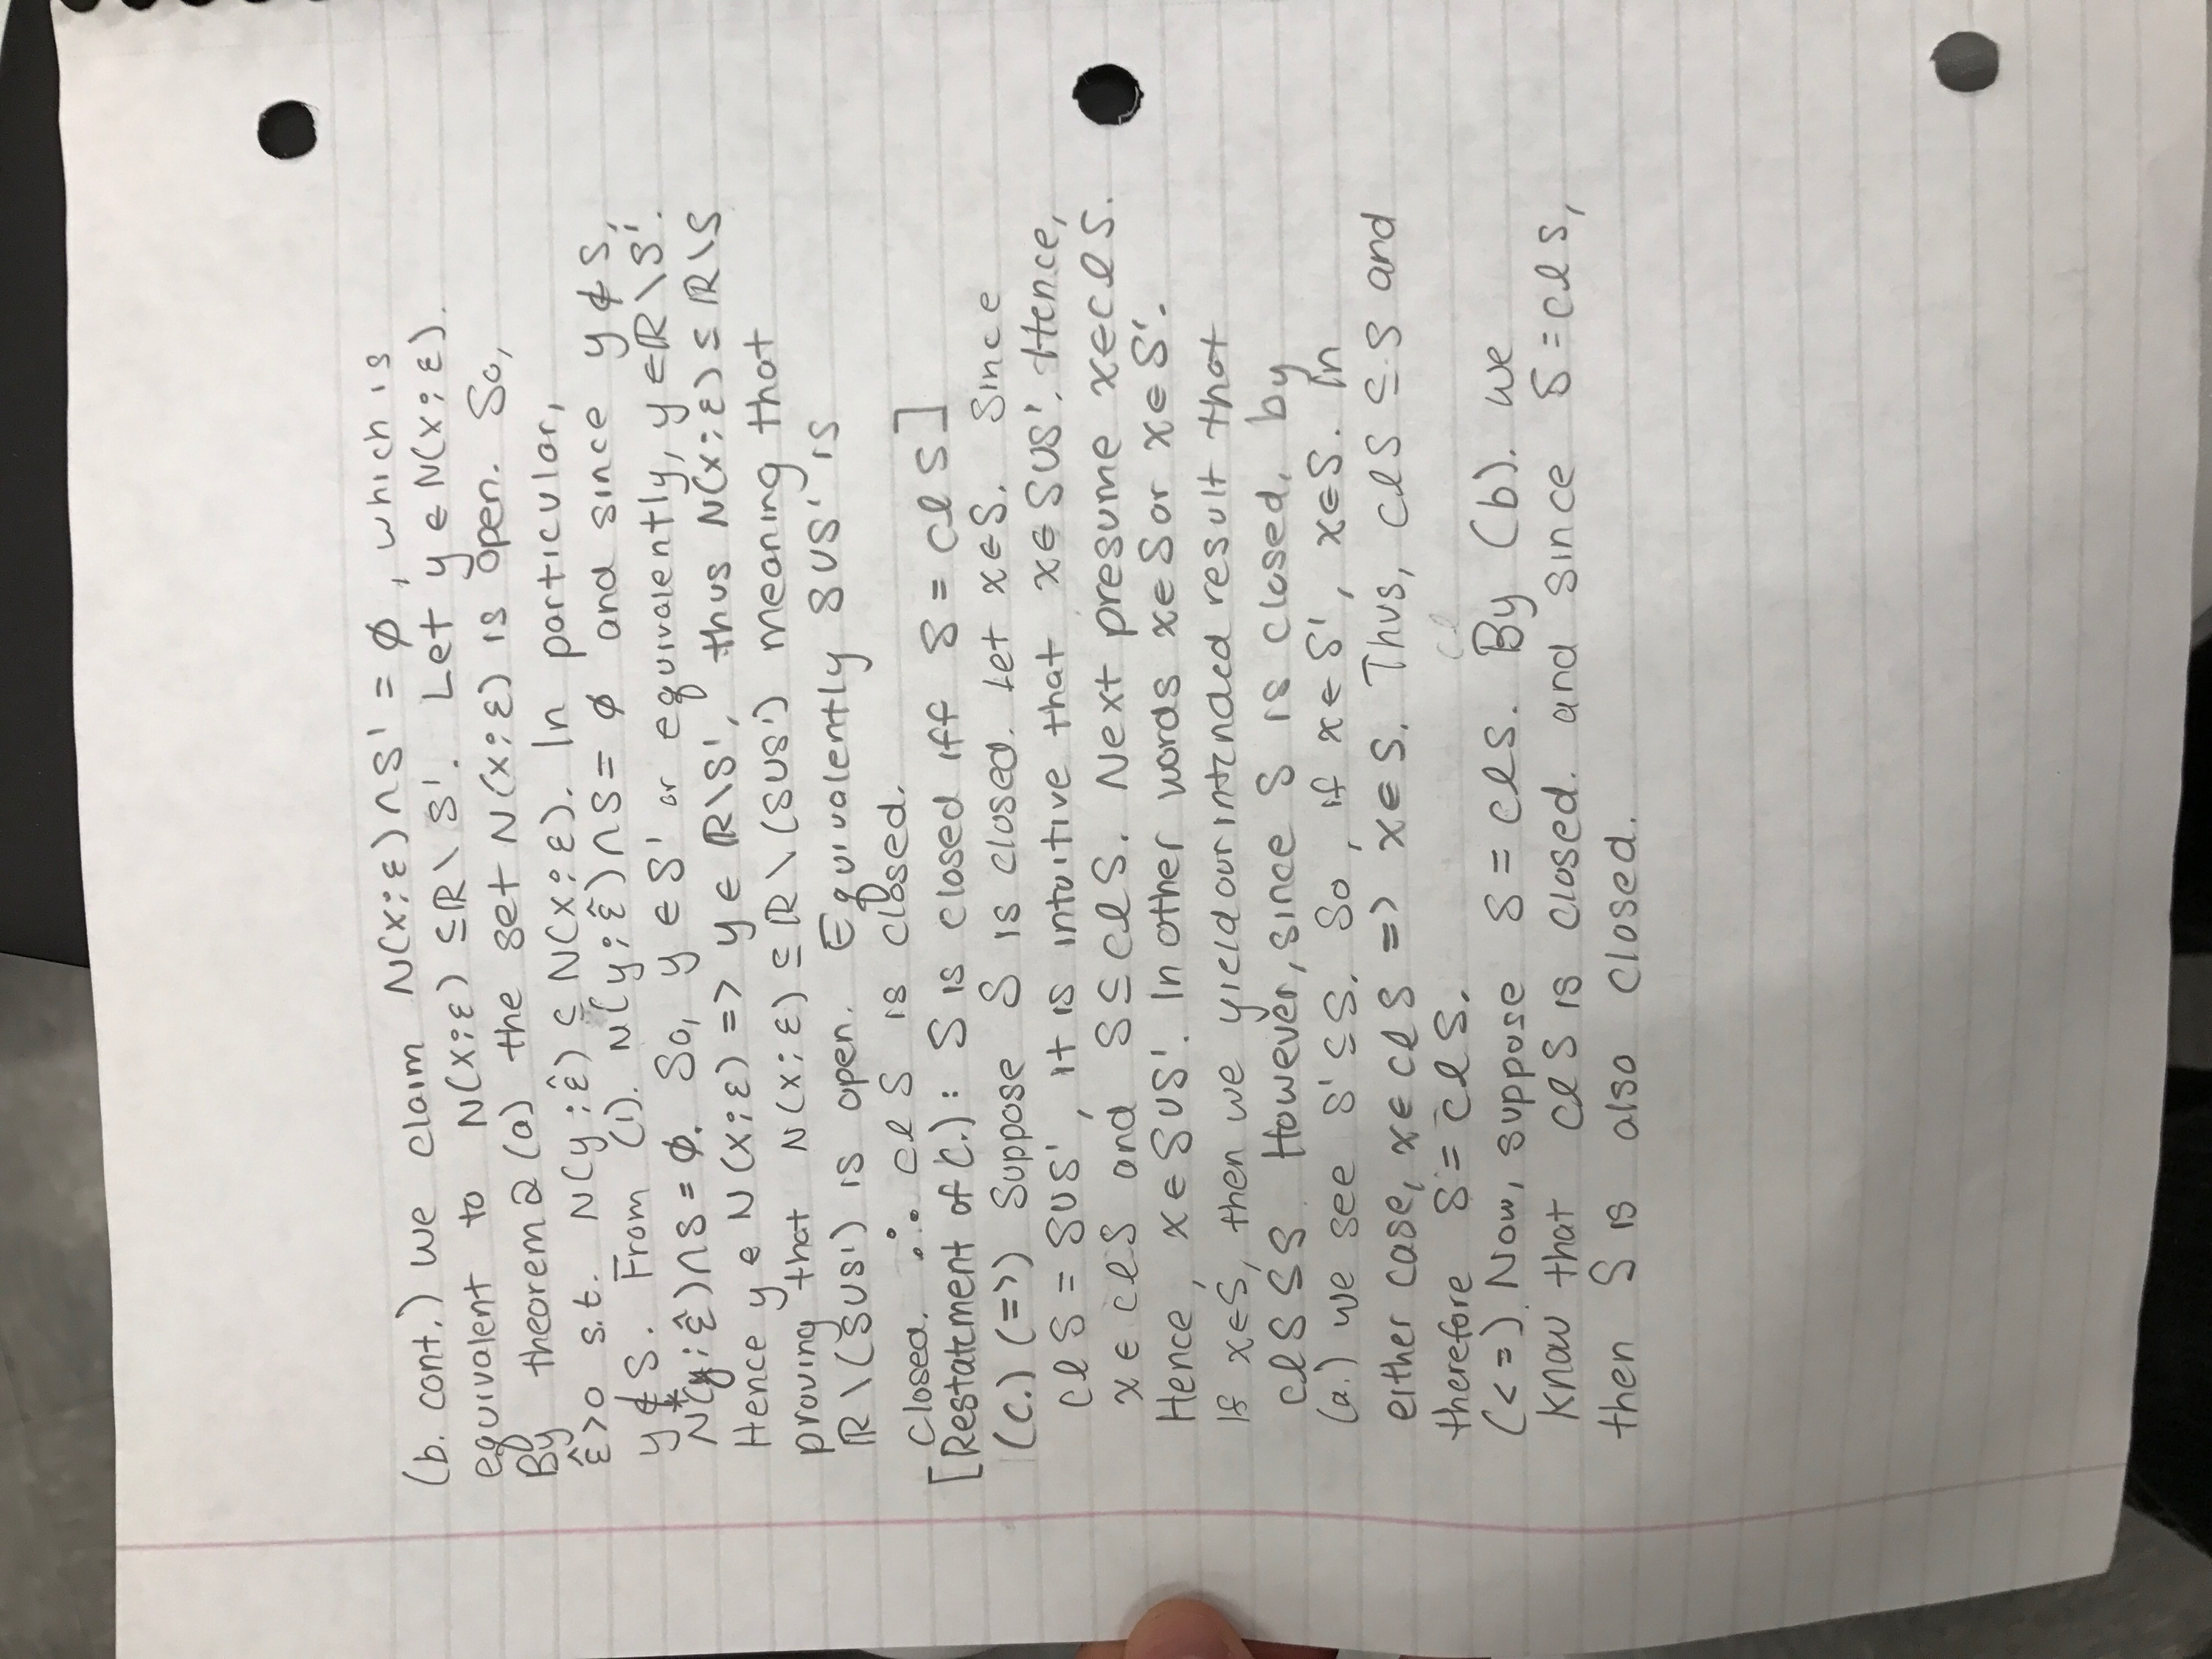 (b. cont.) we claim N(x;ε)∩S' = ∅, which is
equivalent to N(x;ε) ⊆ℝ\S'. Let y ∈ N(x;ε).
By theorem 2 (a) the set N(x;ε) is open. So,
ε̂>0 s.t. N(y;ε̂) ⊆ N(x;ε). In particular,
y∉S. From (1). N(y;ε̂)∩S= ∅ and since y∉S,
N*(y;ε̂)∩S=∅. So, y∈S' or equivalently, y∈ℝ\S'.
Hence y∈N(x;ε) => y∈ ℝ\S', thus N(x;ε)⊆ℝ\S
proving that N(x;ε) ⊆ ℝ\(S∪S') meaning that
ℝ\(S∪S') is open. Equivalently S∪S' is
closed. ∴ cl S is closed.
[Restatement of C.): S is closed iff S = cl S]
(c.) (=>) Suppose S is closed. Let x∈S. Since
cl S = S∪S', it is intuitive that x∈S∪S'. Hence,
x∈cl S and S⊆cl S. Next presume x∈cl S.
Hence, x∈S∪S'. In other words x∈S or x∈S'.
If x∈S, then we yield our intended result that
cl S⊆S. However, since S is closed, by
(a.) we see S'⊆S. So, if x∈S', x∈S. In
either case, x∈cl S => x∈S. Thus, cl S ⊆ S and
therefore S = cl S.
(<=). Now, suppose S = cl S. By (b). we
know that cl S is closed. and since S = cl S,
then S is also closed.